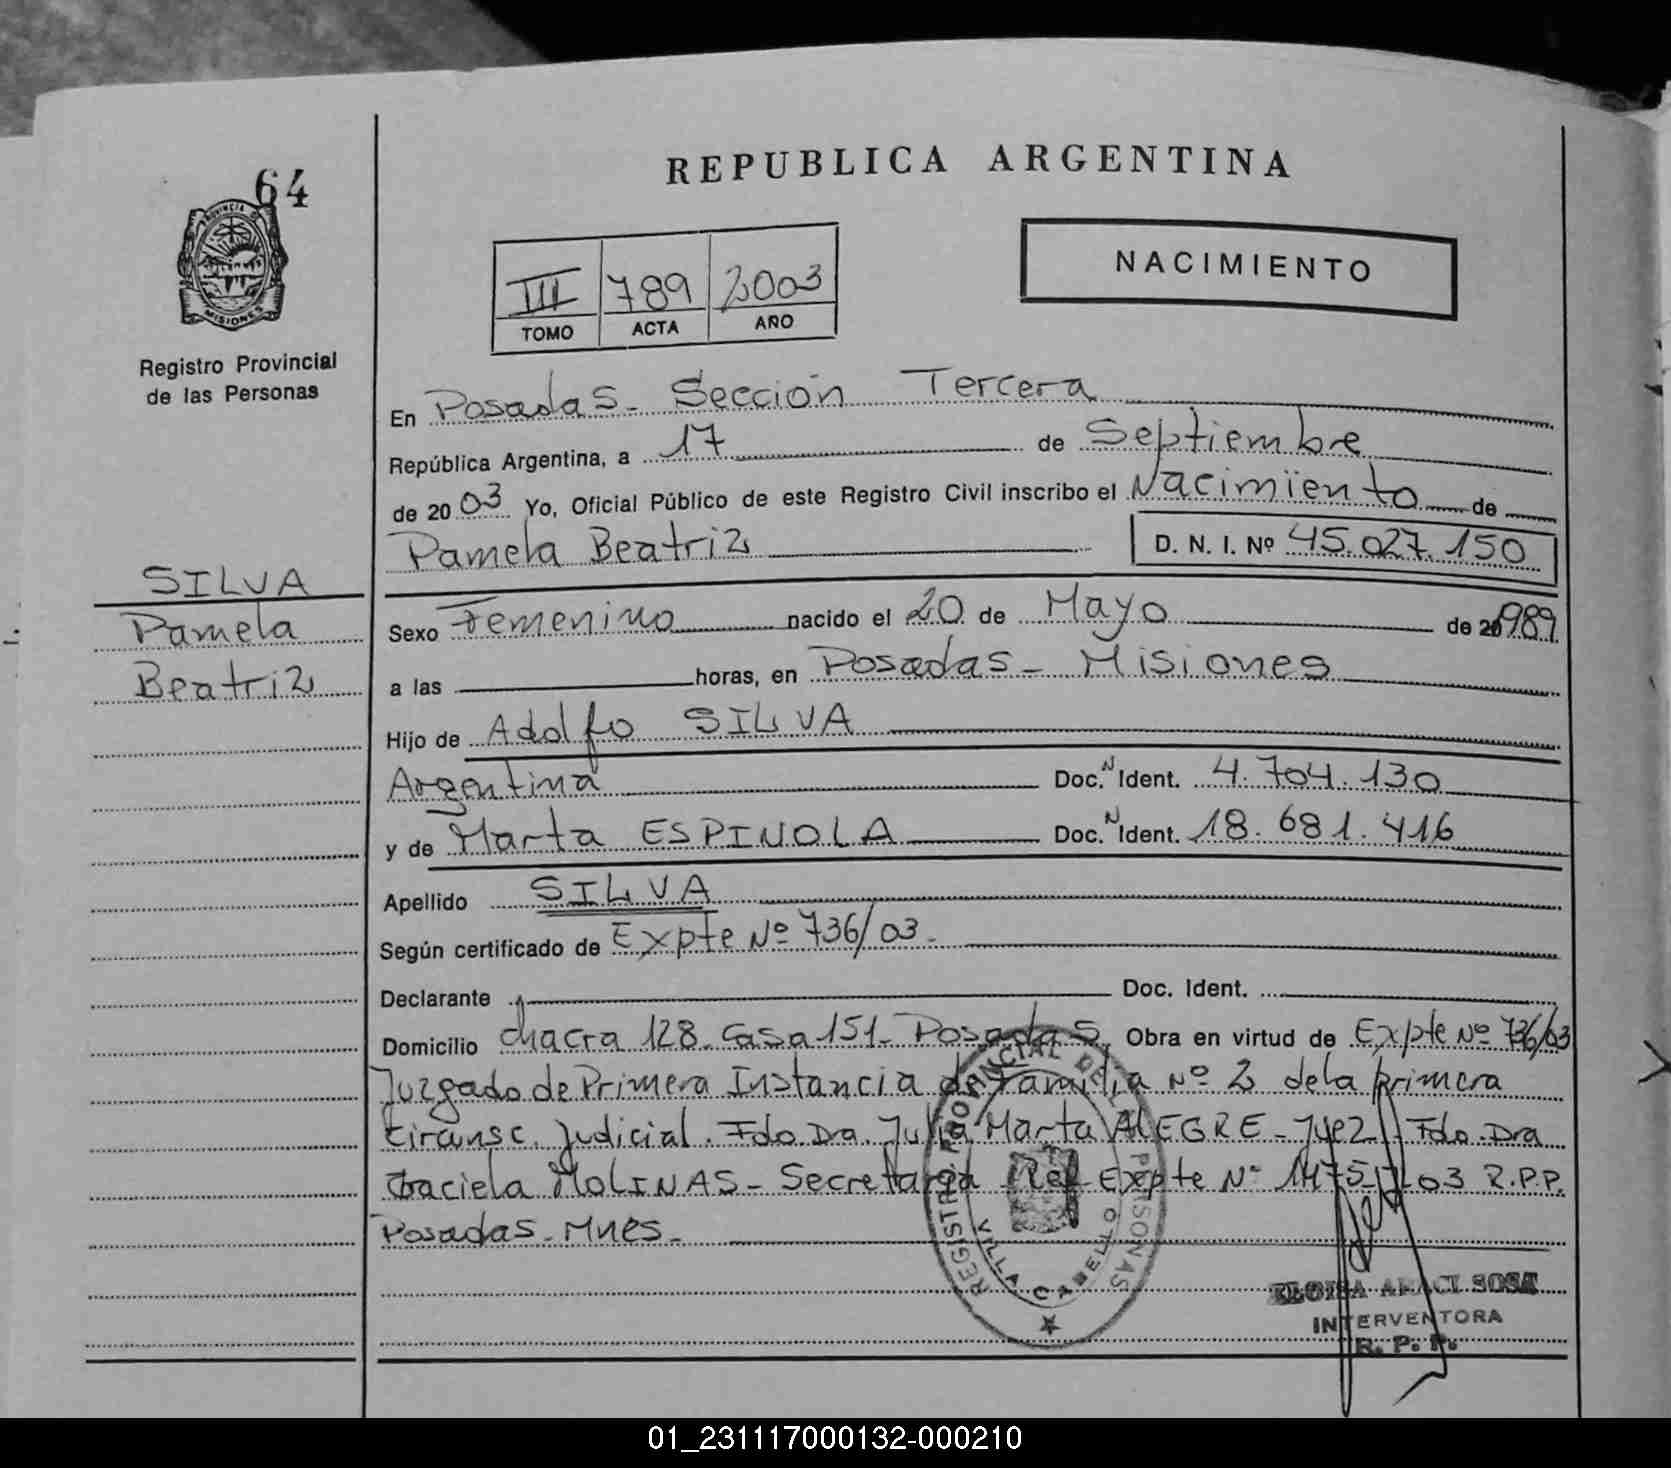 64
REPUBLICA ARGENTINA
PROVINCIA DE MISIONES
Registro Provincial
de las Personas
III 789 2003
TOMO ACTA AÑO
NACIMIENTO
En Posadas - Sección Tercera
República Argentina, a 17 de Septiembre
de 2003 Yo, Oficial Público de este Registro Civil inscribo el Nacimiento de
Pamela Beatriz D. N. I. Nº 45.027.150
SILVA
Pamela
Beatriz
Sexo Femenino nacido el 20 de Mayo de 1989
a las horas, en Posadas - Misiones
Hijo de Adolfo SILVA
Argentina Doc. N Ident. 4.704.130
y de Marta ESPINOLA Doc. N Ident. 18.681.416
Apellido SILVA
Según certificado de Expte Nº 736/03-
Declarante Doc. Ident.
Domicilio chacra 128 - Casa 151 - Posadas Obra en virtud de Expte Nº 736/03
Juzgado de Primera Instancia de Familia Nº 2 de la primera
Circunsc. Judicial. Fdo Dra. Julia Marta ALEGRE - Juez - Fdo. Dra
Graciela MOLINAS - Secretaria Ref Expte Nº 03 R.P.P.
Posadas - Mnes -
REGISTRO PROVINCIAL DE PERSONAS
VILLA CABELLO
ELOISA ARACI SOSA
INTERVENTORA
R. P. P.
01_231117000132-000210